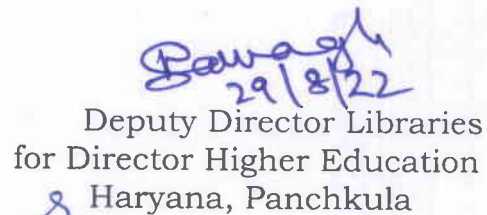 29/8/22
Deputy Director Libraries
for Director Higher Education
Haryana, Panchkula